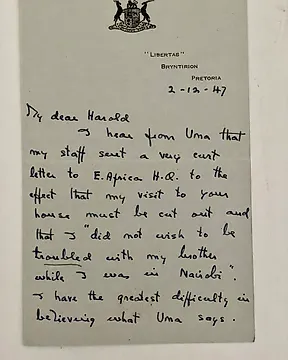 "LIBERTAS"
BRYNTIRION
PRETORIA
2-12-47
My dear Harold
I hear from Una that
my staff sent a very curt
letter to E. Africa H.Q. to the
effect that my visit to your
house must be cut out and
that I "did not wish to be
troubled with my brother
while I was in Nairobi".
I have the greatest difficulty in
believing what Una says.